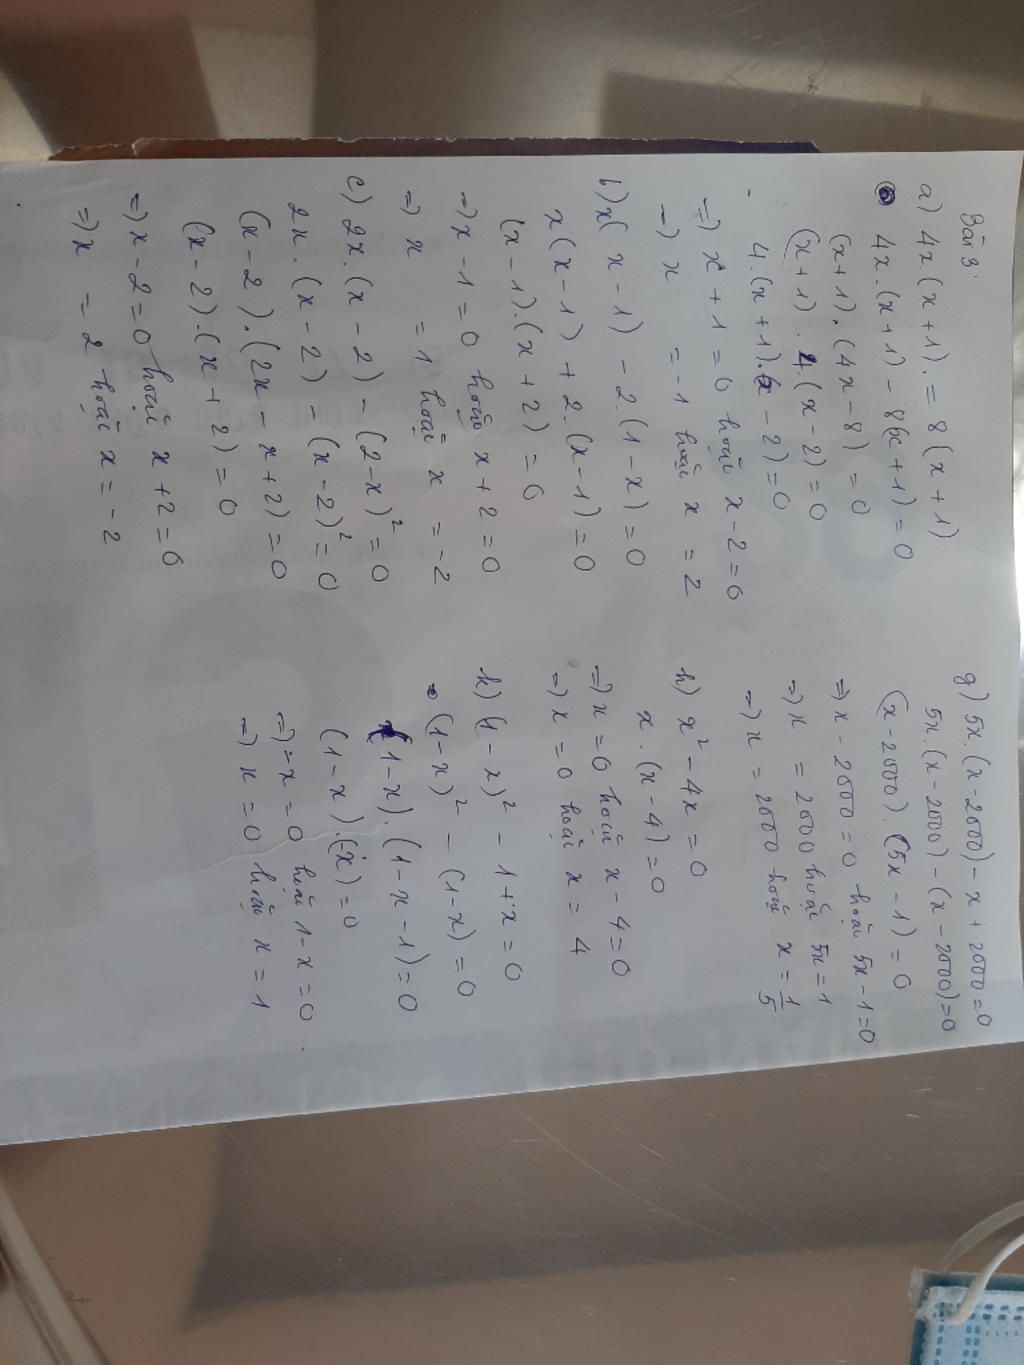 Bài 3:
a) 4x.(x+1). = 8(x+1)
4x.(x+1) - 8(x+1) = 0
(x+1).(4x-8) = 0
(x+1).4(x-2) = 0
4.(x+1).(x-2) = 0
=) x+1 = 0 hoặc x-2 = 0
=) x = -1 hoặc x = 2
b) x(x-1) - 2.(1-x) = 0
x(x-1) + 2.(x-1) = 0
(x-1).(x+2) = 0
=) x-1 = 0 hoặc x+2 = 0
=) x = 1 hoặc x = -2
c) 2x.(x-2) - (2-x)² = 0
2x.(x-2) - (x-2)² = 0
(x-2).(2x-x+2) = 0
(x-2).(x+2) = 0
=) x-2 = 0 hoặc x+2 = 0
=) x = 2 hoặc x = -2
g) 5x.(x-2000) - x + 2000 = 0
5x.(x-2000) - (x-2000) = 0
(x-2000).(5x-1) = 0
=) x-2000 = 0 hoặc 5x-1 = 0
=) x = 2000 hoặc 5x = 1
=) x = 2000 hoặc x = 1/5
h) x² - 4x = 0
x.(x-4) = 0
=) x = 0 hoặc x-4 = 0
=) x = 0 hoặc x = 4
k) (1-x)² - 1 + x = 0
(1-x)² - (1-x) = 0
(1-x).(1-x-1) = 0
(1-x).(-x) = 0
=) -x = 0 hoặc 1-x = 0
=) x = 0 hoặc x = 1